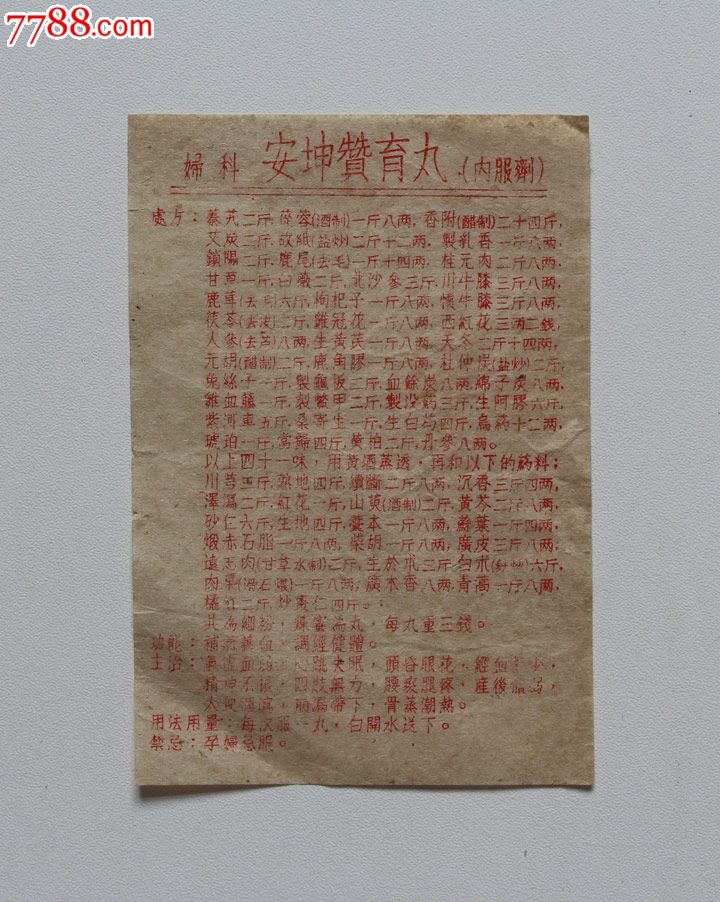 7788.com
婦科 安坤贊育丸 (内服劑)
處方：蓁艽二斤, 蓯蓉(酒制)一斤八两, 香附(醋制)二十四斤,
艾炭二斤, 故紙(盐炒)二斤十二两, 製乳香一斤八两,
鎖陽二斤, 鹿尾(去毛)一斤十四两, 桂元肉二斤八两,
甘草一斤, 白薇二斤, 北沙参三斤, 川牛膝三斤八两,
鹿茸(去毛)六斤, 枸杞子一斤八两, 懷牛膝三斤八两,
茯苓(去皮)二斤, 雞冠花一斤八两, 西紅花三两二銭,
人参(去芦)八两, 生黃芪一斤八两, 天冬二斤十四两,
元胡(醋制)二斤, 鹿角膠一斤八两, 杜仲炭(盐炒)二斤,
兔絲子一斤, 製龜板二斤, 血餘炭八两, 綿子炭八两,
雞血藤一斤, 製鱉甲二斤, 製没药三斤, 生阿膠六斤,
紫河車五斤, 桑寄生一斤, 生白芍四斤, 烏药十二两,
琥珀一斤, 當歸四斤, 黃柏二斤, 丹参八两。
以上四十一味，用黃酒蒸透，再和以下的药料；
川芎三斤, 熟地四斤, 續斷二斤八两, 沉香三斤四两,
澤瀉二斤, 紅花一斤, 山萸(酒制)二斤, 黃芩二斤八两,
砂仁六斤, 生地四斤, 藁本一斤八两, 蘇葉一斤四两,
煅赤石脂一斤八两, 柴胡一斤八两, 廣皮三斤八两,
遠志肉(甘草水制)二斤, 生於朮三斤, 白朮(麸炒)六斤,
肉果(滑石煨)一斤八两, 廣木香八两, 青蒿一斤八两,
橘紅二斤, 炒棗仁四斤。
共為細粉，煉蜜為丸，每丸重三錢。
功能：補氣養血，調經健體。
主治：氣虛血虧，心跳失眠，頭昏眼花，經血
精神不振，四肢無力，腰痠腿疼，産後
崩漏帶下，骨蒸潮熱。
用法用量：每次服一丸，白開水送下。
禁忌：孕婦忌服。